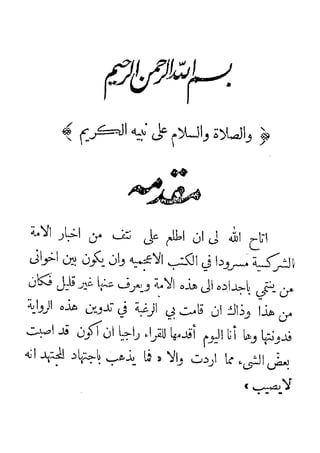 بسم الله الرحمن الرحيم
﴿ والصلاة والسلام على نبيه الكريم ﴾
مقدمه
اتاح الله لى ان اطلع على نتف من اخبار الامة
الشركسية مسرودا في الكتب الاعجميه وان يكون بين اخوانى
من ينتمي باجداده الى هذه الامة ويعرف عنها غير قليل فكان
من هذا وذاك ان قامت بي الرغبة في تدوين هذه الرواية
فدونتها وها أنا اليوم أقدمها للقراء راجيا ان أكون قد اصبت
بعض الشىء مما اردت والا ه فما يذهب باجتهاد المجتهد انه
لا يصيب ،